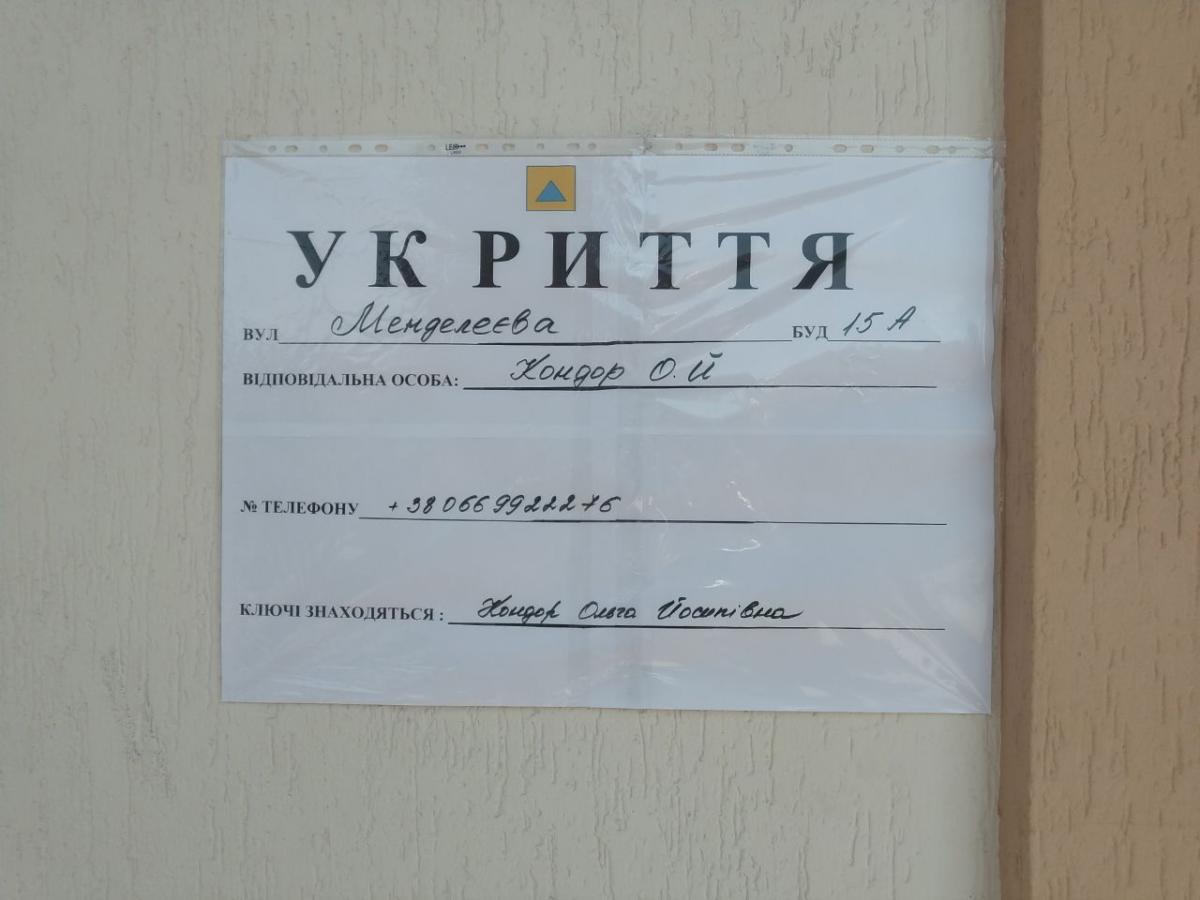 УКРИТТЯ
ВУЛ Менделеєва БУД 15 А
ВІДПОВІДАЛЬНА ОСОБА: Кондор О.Й
№ ТЕЛЕФОНУ +380669922276
КЛЮЧІ ЗНАХОДЯТЬСЯ : Кондор Ольга Йосипівна